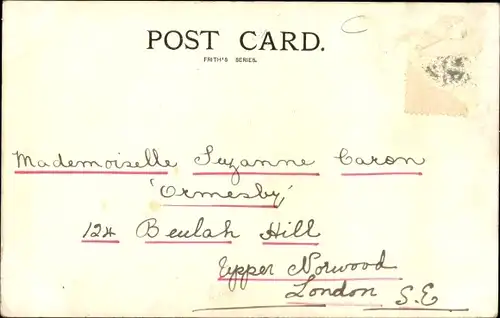 POST CARD.
FRITH'S SERIES.
Mademoiselle Suzanne Caron
'Ormesby'
124 Beulah Hill
Upper Norwood
London S.E